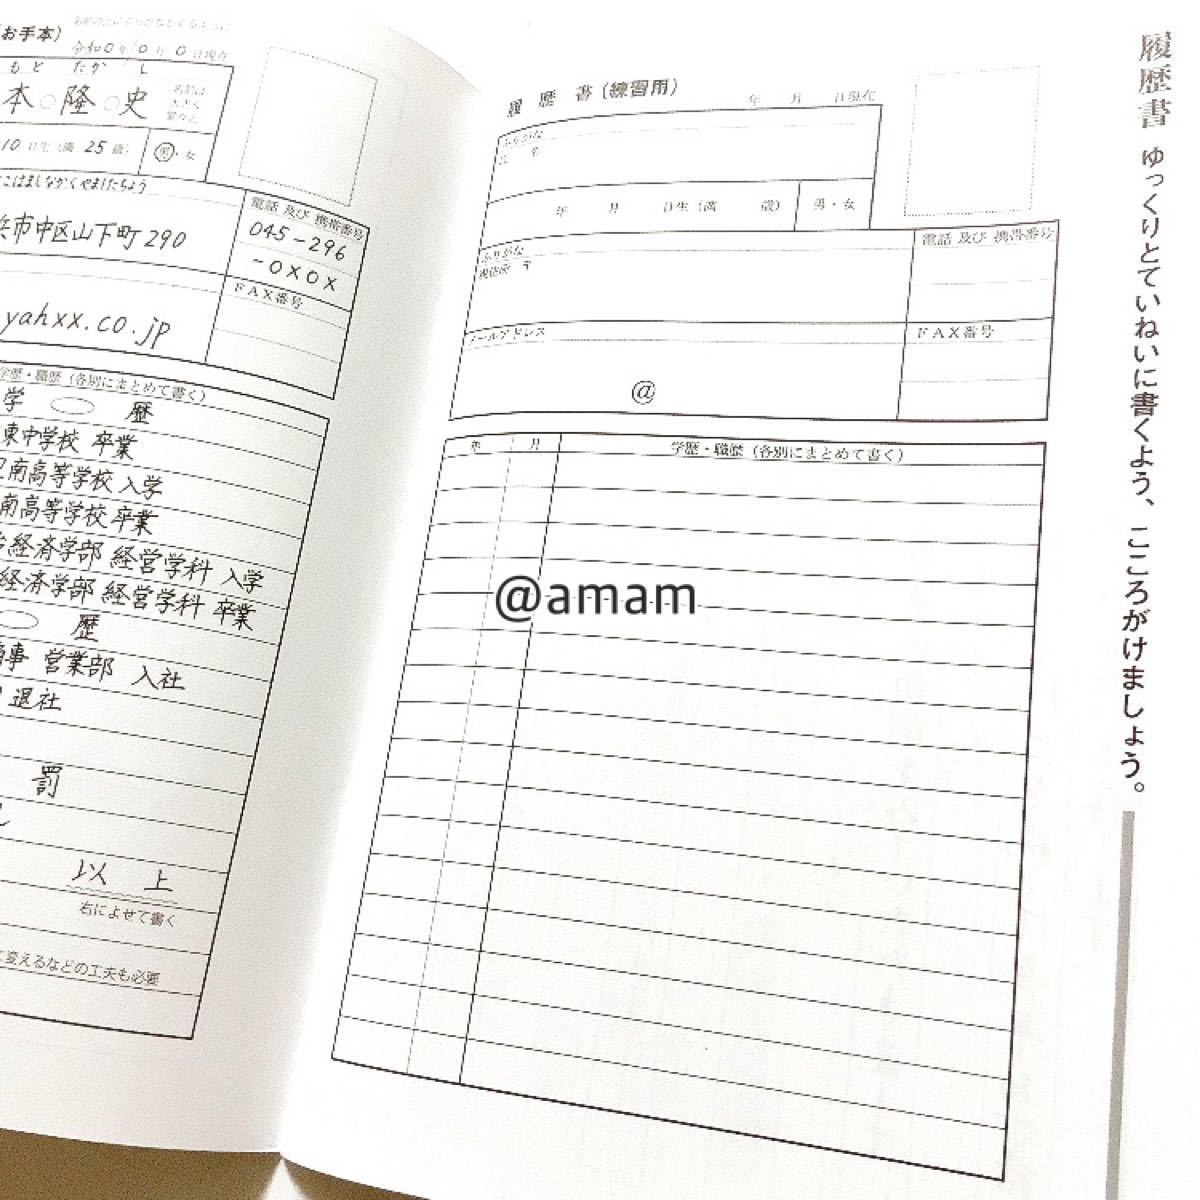 お手本)
令和0年0月0日現在
もと たかし
本 隆 史
10日生(満25歳)
男・女
こはましなかくやましたちょう
浜市中区山下町290
電話 及び 携帯番号
045-296
-0X0X
FAX番号
yahxx.co.jp
学歴・職歴(各別にまとめて書く)
学 歴
東中学校 卒業
南高等学校 入学
南高等学校 卒業
経済学部 経営学科 入学
経済学部 経営学科 卒業
歴
事 営業部 入社
退社
罰
以 上
右によせて書く
変えるなどの工夫も必要
履 歴 書(練習用)
年 月 日現在
ふりがな
氏 名
年 月 日生(満 歳)
男・女
ふりがな
現住所 〒
電話 及び 携帯番号
メールアドレス
@
FAX番号
年 月 学歴・職歴(各別にまとめて書く)
@amam
履歴書 ゆっくりとていねいに書くよう、こころがけましょう。